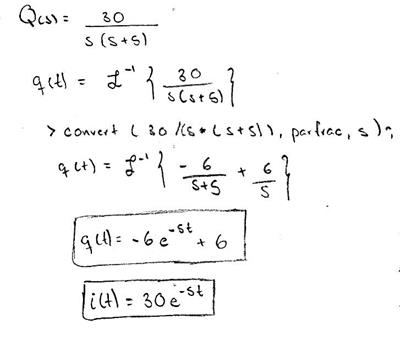 Q(s) = 30 / s(s+5)
q(t) = ℒ⁻¹ { 30 / s(s+5) }
> convert (30/(s*(s+5)), parfrac, s);
q(t) = ℒ⁻¹ { - 6/(s+5) + 6/s }
q(t) = -6e^(-5t) + 6
i(t) = 30e^(-5t)